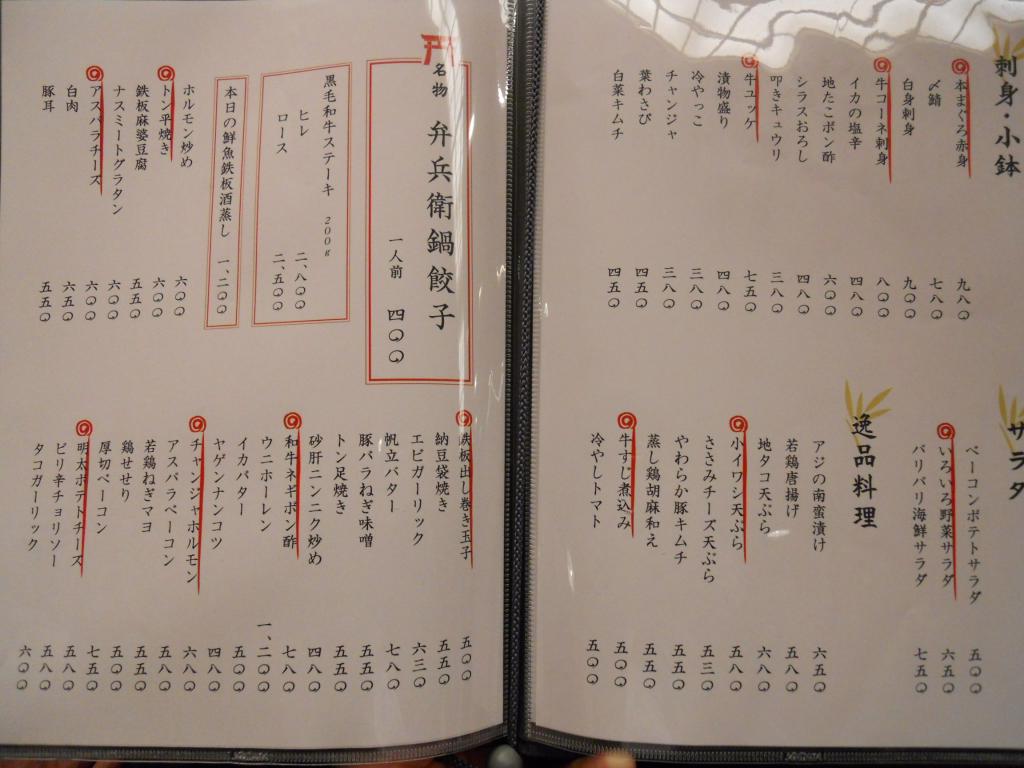 刺身・小鉢
本まぐろ赤身 九八〇
〆鯖 七八〇
白身刺身 九〇〇
牛コーネ刺身 八〇〇
イカの塩辛 四八〇
地たこポン酢 六〇〇
シラスおろし 四八〇
叩きキュウリ 三八〇
牛ユッケ 七五〇
漬物盛り 四八〇
冷やっこ 三八〇
チャンジャ 三八〇
葉わさび 四五〇
白菜キムチ 四五〇
サラダ
ベーコンポテトサラダ 五〇〇
いろいろ野菜サラダ 六五〇
バリバリ海鮮サラダ 七五〇
逸品料理
アジの南蛮漬け 六五〇
若鶏唐揚げ 五八〇
地タコ天ぷら 六八〇
小イワシ天ぷら 五八〇
ささみチーズ天ぷら 五三〇
やわらか豚キムチ 五五〇
蒸し鶏胡麻和え 五五〇
牛すじ煮込み 五〇〇
冷やしトマト 五〇〇
名物 弁兵衛鍋餃子
一人前 四〇〇
黒毛和牛ステーキ 200g
ヒレ 二、八〇〇
ロース 二、五〇〇
本日の鮮魚鉄板酒蒸し 一、二〇〇
ホルモン炒め 六〇〇
トン平焼き 六〇〇
鉄板麻婆豆腐 五五〇
ナスミートグラタン 六〇〇
アスパラチーズ 六〇〇
白肉 六五〇
豚耳 五五〇
鉄板出し巻き玉子 五〇〇
納豆袋焼き 五五〇
エビガーリック 六三〇
帆立バター 七八〇
豚バラねぎ味噌 五五〇
トン足焼き 五五〇
砂肝ニンニク炒め 四八〇
和牛ネギポン酢 七八〇
ウニホーレン 一、二〇〇
イカバター 五〇〇
ヤゲンナンコツ 四八〇
チャンジャホルモン 六八〇
アスパラベーコン 五八〇
若鶏ねぎマヨ 五五〇
鶏せせり 五五〇
厚切ベーコン 五〇〇
明太ポテトチーズ 七五〇
ピリ辛チョリソー 五八〇
タコガーリック 六〇〇